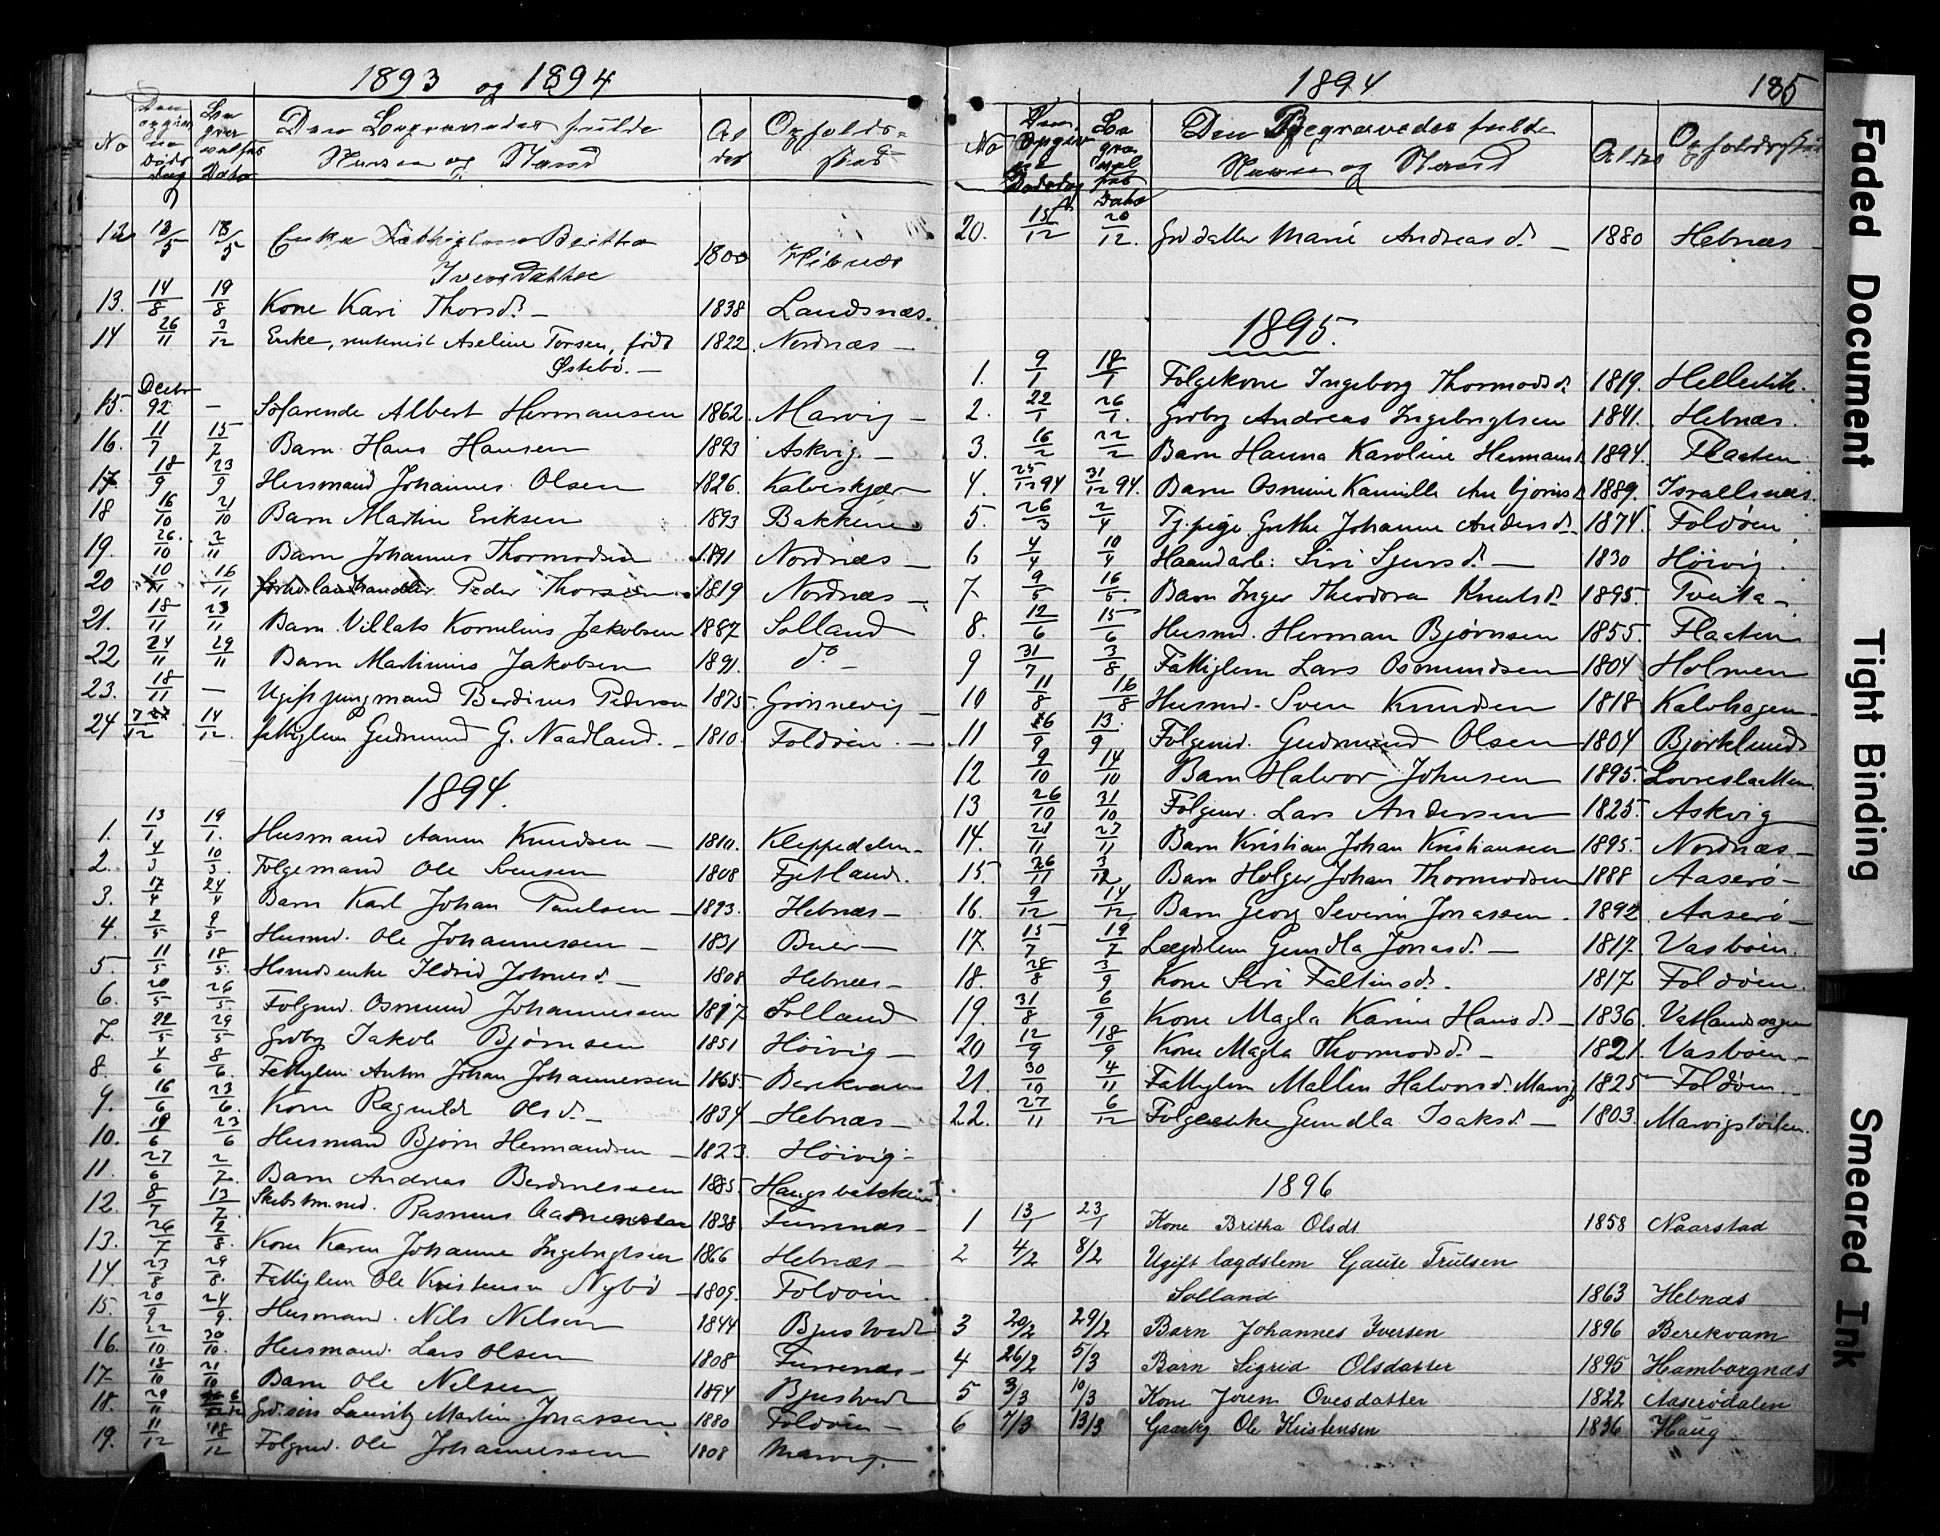 1893 og 1894
No
Den opgivne Døds Dag
Begravelses Dato
Den Begravedes fulde Navn og Stand
Alder
Opholdssted
12 13/5 18/5 Enke Fattiglem Beritha Iversdatter 1800 Hebnæs
13. 14/8 19/8 Kone Kari Thorsd. – 1838 Landsnæs.
14 26/11 3/12 Enke, Aseline Torsen, født Østebö. – 1822. Nordnæs –
15. Decbr 92 – Söfarende Albert Hermansen 1862. Marvig –
16. 11/7 15/7 Barn Hans Hansen 1893 Askvig. –
17. 18/9 23/9 Husmand Johannes Olsen 1826. Kalveskjær
18 16/10 21/10 Barn Martin Eriksen 1893 Bakkene
19. 26/10 2/11 Barn Johannes Thormodsen 1891 Nordnæs –
20 10/11 16/11 Peder Thorsen 1819 Nordnæs –
21. 18/11 23/11 Barn Villats Kornelius Jakobsen 1887. Solland
22 24/11 29/11 Barn Martinius Jakobsen 1891. do –
23. 18/11 – Ugift jungmand Berdines Pedersen 1875 Grönnevig
24 7/12 14/12. fattiglem Gudmund G. Naadland. – 1810. Foldöen. –
1894.
1. 13/1. 19/1. Husmand Aanen Knudsen – 1810. Kleppedalen –
2. 4/3 10/3. Folgemand Ole Svensen 1808 Fjetland.
3. 17/4 24/4 Barn Karl Johan Paulsen – 1893. Hebnæs –
4. 2/5 9/5 Husmd. Ole Johannessen – 1831 Buer –
5. 11/5 18/5. Husmdsenke Ildrid Johnesd. – 1808 Hebnæs –
6. 20/5 26/5. Folgmd. Osmund Johannessen 1817 Solland
7. 22/5 29/5 Grdbr Jakob Bjørnsen 1851 Höivig –
8. 4/6 8/6. Fattiglem Anton Johan Johannessen 1865 Berekvam
9. 16/6 23/6. Kone Ragnilde Olsd. – 1834 Hebnæs –
10. 19/6 23/6 Husmand Bjørn Hermandsen – 1823. Höivig –
11. 27/6 2/7. Barn Andreas Berdinessen 1885 Haugsbakken
12. 8/7 13/7. Skibstmmd. Rasmus Aanensen 1828 Furrenæs –
13. 26/7 2/8. Kone Karen Johanne Ingebrigtsen 1866 Hebnæs –
14. 23/8 29/8. Fattiglem Ole Kristensen Nybö – 1809. Foldöen
15. 20/9 24/9. Husmand. Nils Nilsen 1844 Bjustvedt
16. 22/10 30/10. Husmand. Lars Olsen 1808 Furrenæs –
17. 18/10 21/10 Barn Ole Nilsen 1894 Bjustvedt
18. 29/11 6/12 Grd.søn Lauritz Martin Jonassen 1880 Foldöen –
19. 11/12 18/12 Folgmd. Ole Johannessen 1808 Marvig.
1894
185
No
Den Opgivne Dødsdag
Begravelses Dato
Den Begravedes fulde Navn og Stand
Alder
Opholdssted
20. 15/12 20/12. Grddatter Marie Andreasd. – 1880 Hebnæs
1895.
1. 9/1 18/1 Folgekone Ingeborg Thormodsd. 1819. Hellestük.
2. 22/1 26/1. Grdbr Andreas Ingebrigtsen 1841. Hebnæs.
3. 16/2 22/2 Barn Hanna Karoline Hermansd. 1894. Flaaten
4. 25/12 94 31/12 94. Barn Osmine Kamille Anbjørnsd. 1889. Israelsnæs.
5. 26/3 2/4 Tj.pige Grethe Johanne Andersd. 1874. Foldöen
6 4/4 10/4 Haandarb: Siri Sjursd. – 1830 Höivig.
7 9/5 16/5. Barn Inger Theodora Knutsd. 1895. Tveita –
8. 12/6 15/6 Husmd. Herman Bjørnsen 1855. Flaaten
9 31/7 3/8 Fattiglem Lars Osmundsen 1804 Holmen
10 11/8 16/8 Husmd. Sven Knudsen 1818 Kalvhagen
11 26/9 13./9 Folgemd. Gudmund Olsen 1804 Bjørklund
12 9/10 14/10 Barn Halvor Johnsen 1895. Lovreslaatten
13 26/10 31/10 Folgmd. Lars Andersen 1825 Askvig
14. 21/11 27/11 Barn Kristian Johan Kristiansen 1895. Nordnæs –
15. 26/11 3/12 Barn Holger Johan Thormodsen 1888 Aaserö –
16. 9/12 14/12 Barn Georg Severin Jonassen. 1892. Aaserö –
17. 15/7 19/7 Lægdslem Gundla Jonasd. – 1817. Vasböen.
18. 28/8 3/9 Kone Siri Faltinsd. – 1817 Foldöen.
19. 31/8 6/9 Kone Magla Karine Hansd. – 1836. Vatlandsvagen
20 12/9 18/9 Kone Magla Thormodsd. – 1821. Vasböen –
21. 30/10 4/11 Fattiglem Mallin Halvorsd. Marvig 1825 – Foldöen
22. 27/11 6/12 Folgeenke Gundla Isaksd. – 1803. Marvigstölen.
1896
1 13/1 23/1 Kone Britha Olsdt 1858 Naarstad
2 4/2 8/2 Ugift lægdslem Gaute Trulsen
Solland 1863 Hebnæs
3 20/2 29/2 Barn Johannes Iversen 1896 Berekvam
4 26/2 5/3 Barn Sigrid Olsdatter 1895 Hamborgnæs
5 3/3 10/3 Kone Joren Ovesdatter 1822 Aaserödalen
6 7/3 13/3 Gaarbr Ole Kristensen 1836 Haug
Faded Document
Tight Binding
Smeared Ink